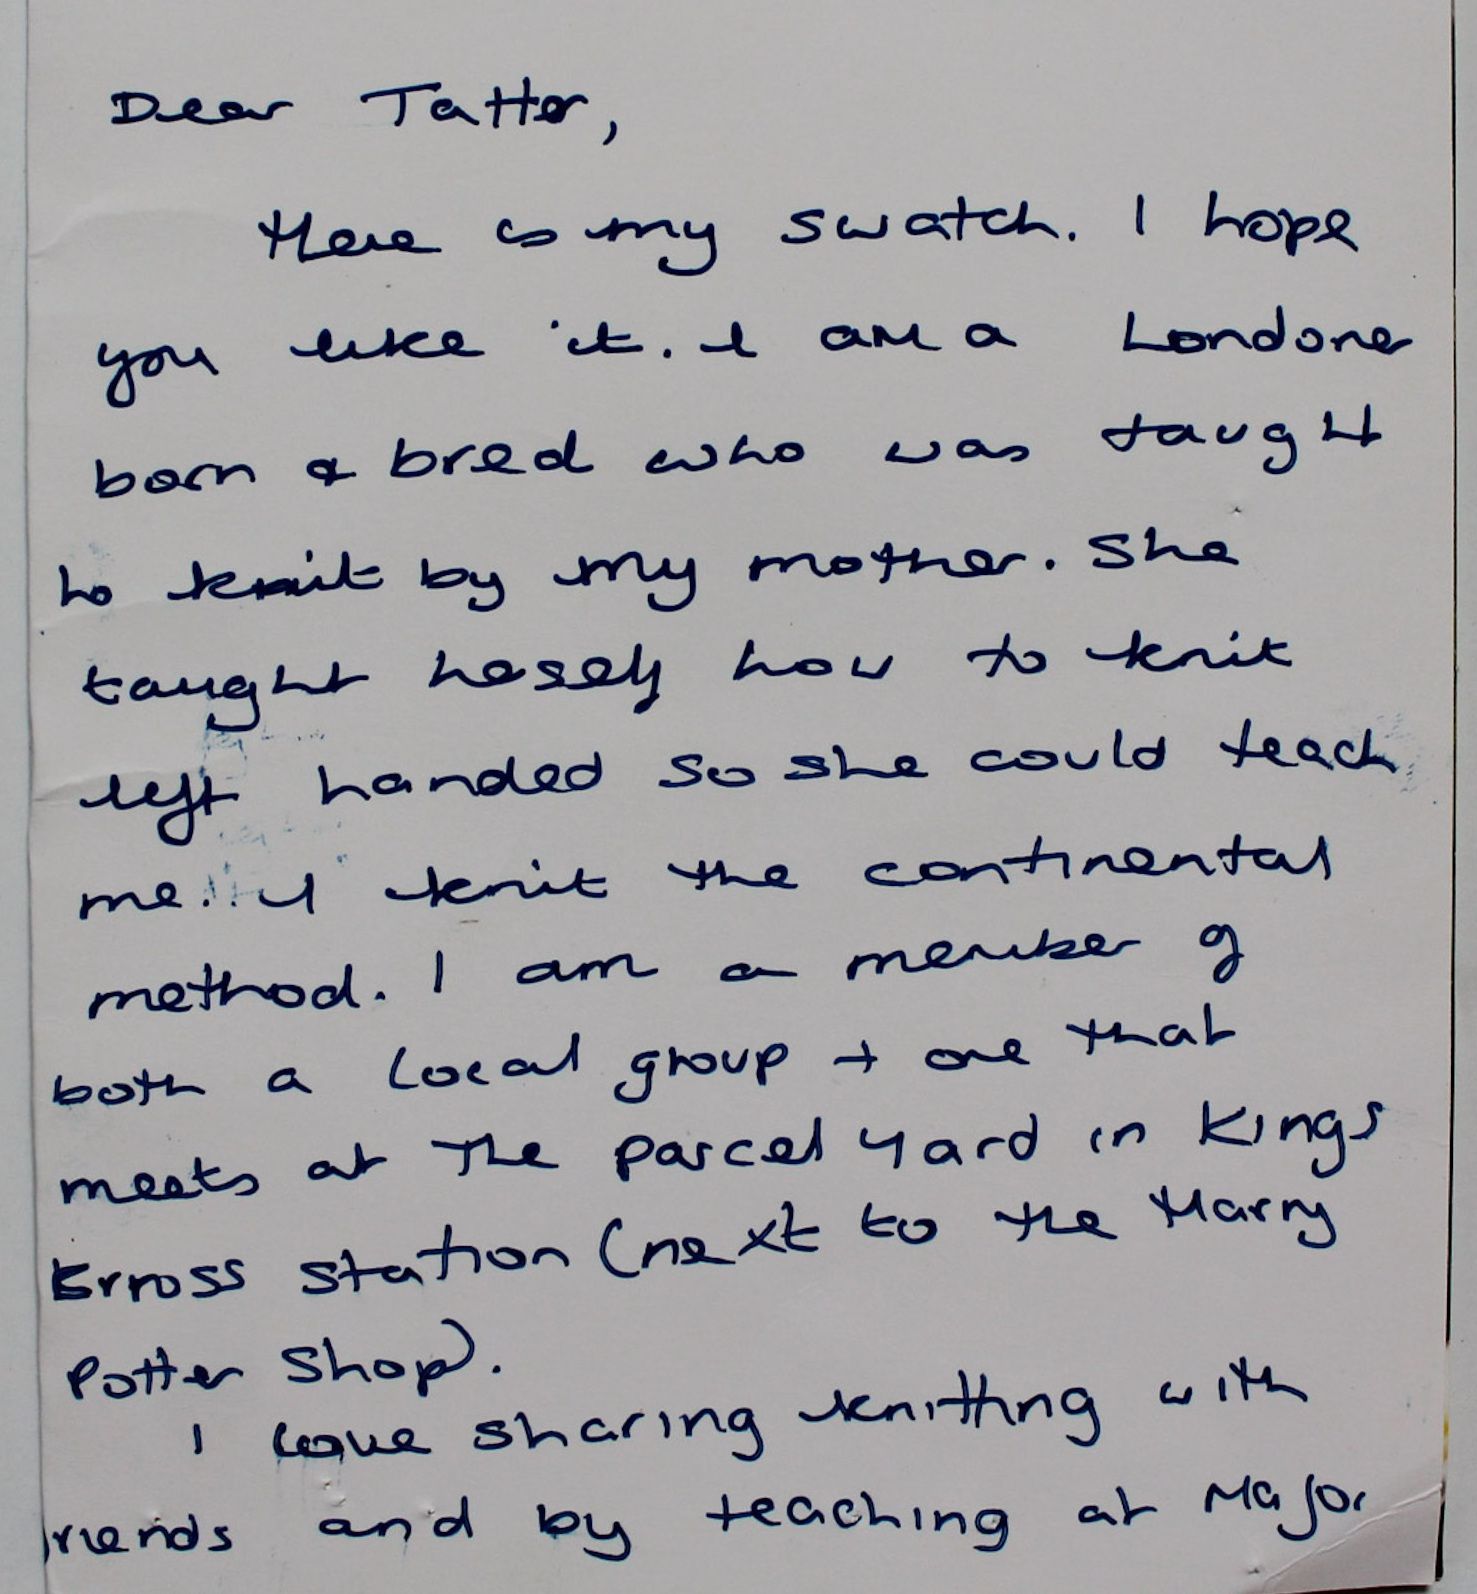 Dear Tatter,
Here is my swatch. I hope
you like it. I am a Londoner
born & bred who was taught
to knit by my mother. She
taught herself how to knit
left handed so she could teach
me. I knit the continental
method. I am a member of
both a local group + one that
meets at The Parcel Yard in Kings
Krross station (next to the Harry
Potter Shop).
I love sharing knitting with
friends and by teaching at Major